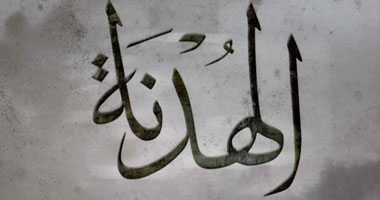 الهُدْنَة